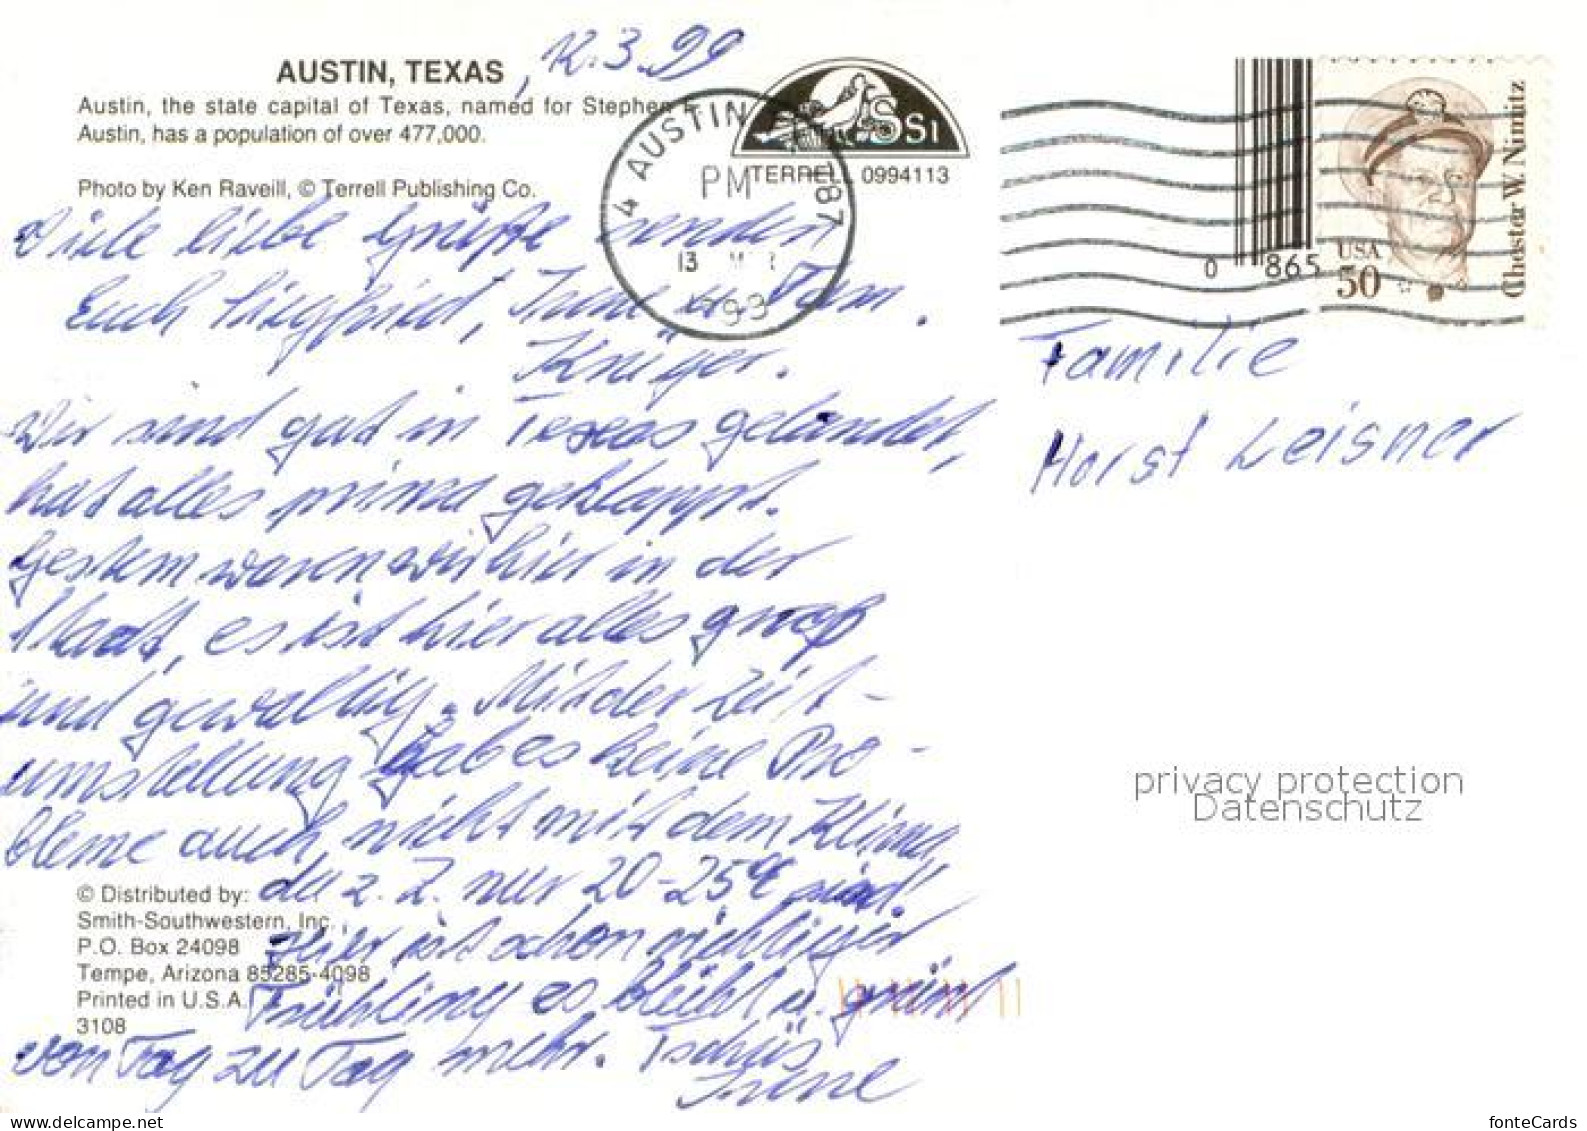 AUSTIN, TEXAS , 12.3.99
Austin, the state capital of Texas, named for Stephen F.
Austin, has a population of over 477,000.
Photo by Ken Raveill, © Terrell Publishing Co.
SSI
TERRELL 0994113
4 AUSTIN 787
PM
13
Viele liebe Grüße senden
Euch Siegfried, Irene u. Fam.
Krüger.
Wir sind gut in Texas gelandet,
hat alles prima geklappt.
Gestern waren wir hier in der
Stadt, es ist hier alles groß
und gewaltig. Mit der Zeit-
umstellung gab es keine Pro-
bleme auch nicht mit dem Klima,
da z. Z. nur 20-25°C sind!
Hier ist schon richtiger
Frühling es blüht u. grünt
von Tag zu Tag mehr. Tschüs
Irene
© Distributed by:
Smith-Southwestern, Inc.
P.O. Box 24098
Tempe, Arizona 85285-4098
Printed in U.S.A.
3108
0 865
USA
50
Chester W. Nimitz
Familie
Horst Leisner
privacy protection
Datenschutz
www.delcampe.net
fonteCards